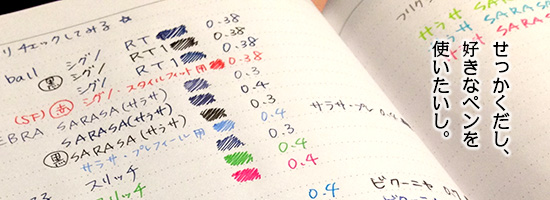 リ チェックしてみる ☆
ball シグノ RT 0.38
(黒) シグノ RT1 0.38
シグノ RT1 0.38
(SF) (赤) シグノ・スタイルフィット用 0.38
ZEBRA SARASA(サラサ) 0.3
SARASA(サラサ) 0.4
(黒) SARASA(サラサ) 0.3
サラサ・プレフィール用 0.4
スリッチ 0.3
スリッチ 0.4
0.4
サラサ・プレ 0.4
ビクーニャ 0.7
サラサ SARASA
サラサ SARAS
せっかくだし、
好きなペンを
使いたいし。